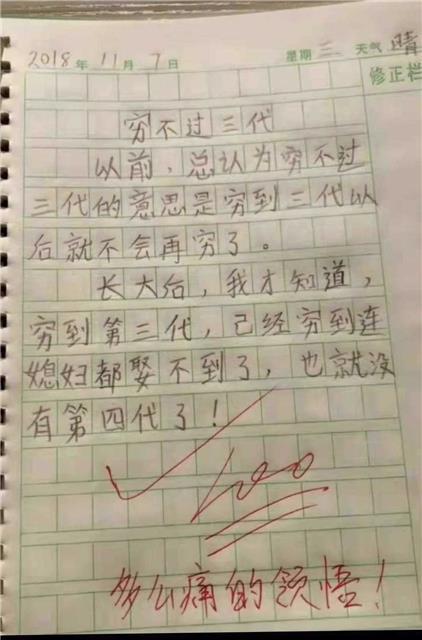 2018年11月7日 星期三 天气晴
修正栏
穷不过三代
以前，总认为穷不过
三代的意思是穷到三代以
后就不会再穷了。
长大后，我才知道，
穷到第三代，已经穷到连
媳妇都娶不到了，也就没
有第四代了！
100
多么痛的领悟！